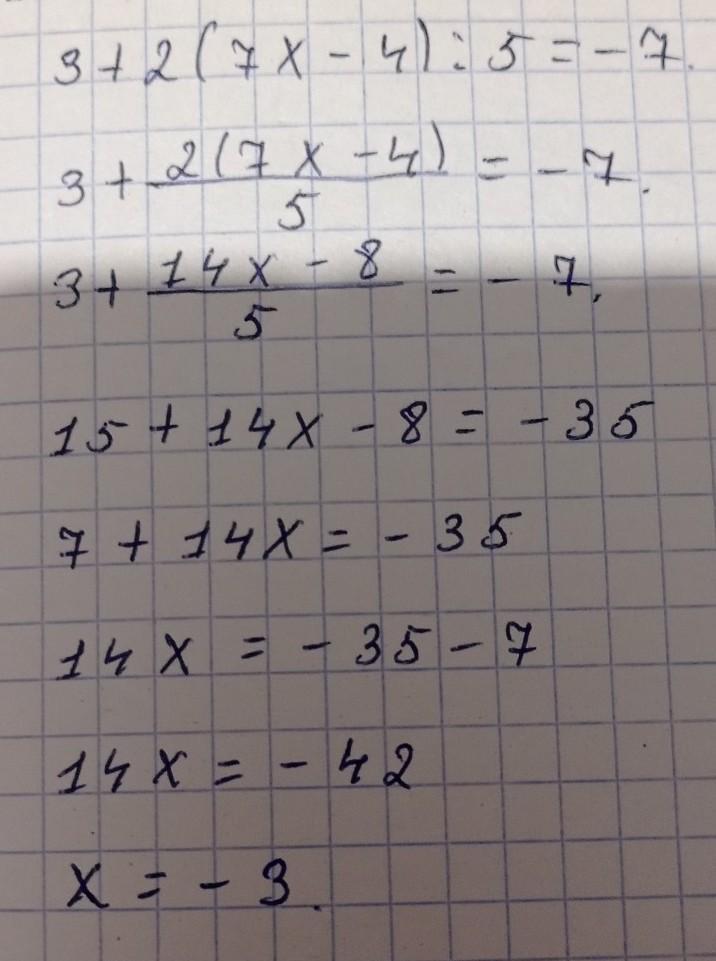 3 + 2(7x - 4) : 5 = -7.
3 + \frac{2(7x - 4)}{5} = -7.
3 + \frac{14x - 8}{5} = -7.
15 + 14x - 8 = -35
7 + 14x = -35
14x = -35 - 7
14x = -42
x = -3.